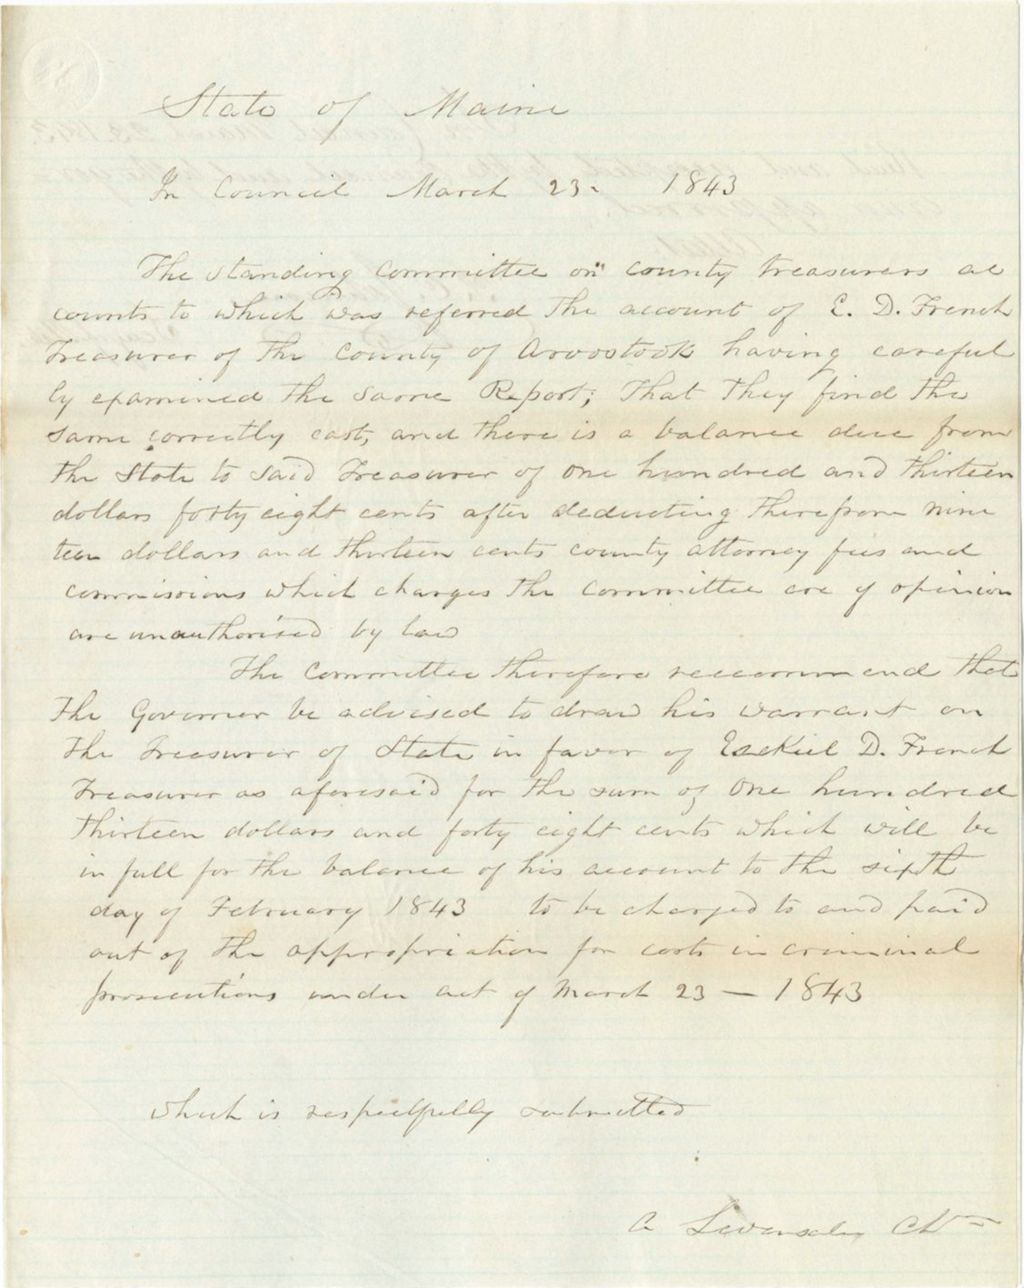 State of Maine
In Council March 23. 1843
The Standing Committee on county treasurers ac
counts to which was referred the account of E. D. French
Treasurer of the County of Aroostook having careful
ly examined the same Report; That they find the
same correctly cast, and there is a balance due from
the State to said Treasurer of one hundred and thirteen
dollars forty eight cents after deducting therefrom nine
teen dollars and thirteen cents county attorney fees and
commissions which charges the committee are of opinion
are unauthorised by law
The Committee therefore reccommend that
the Governor be advised to draw his warrant on
the Treasurer of State in favor of Ezekiel D. French
Treasurer as aforesaid for the sum of One hundred
thirteen dollars and forty eight cents which will be
in full for the balance of his account to the sixth
day of February 1843 to be charged to and paid
out of the appropriation for costs in criminal
prosecutions under act of March 23 — 1843
which is respectfully submitted
A Levensaler Chn